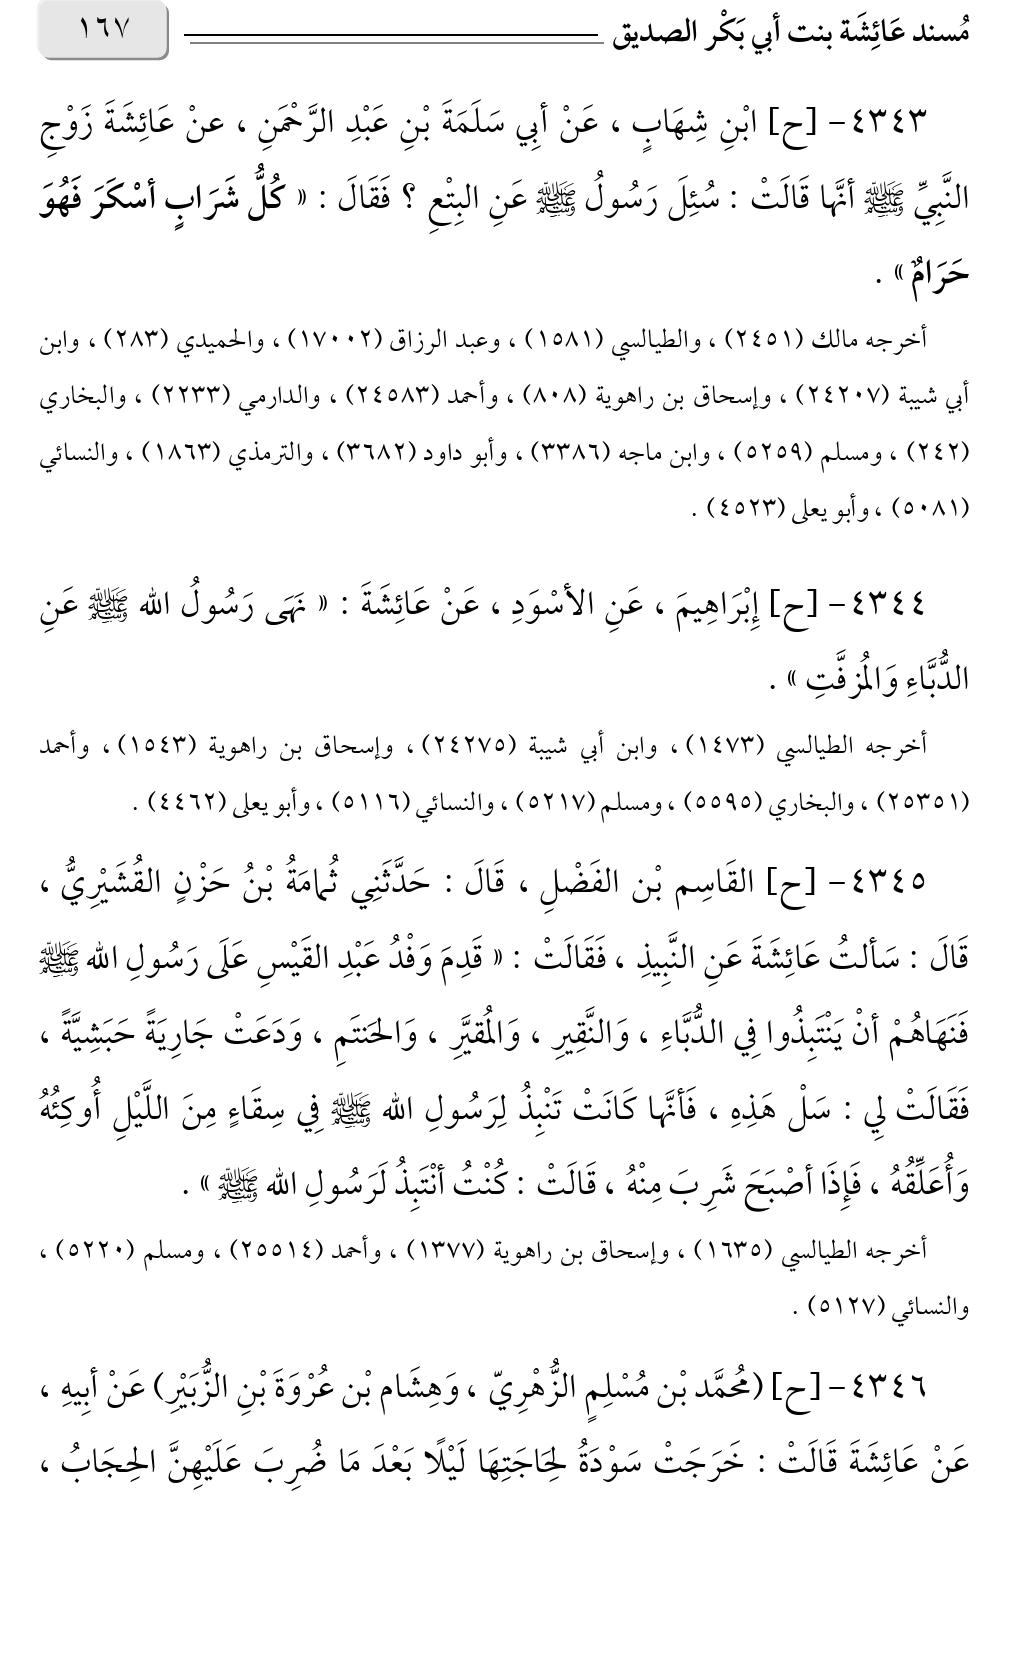 مُسند عَائِشَة بنت أبي بَكْر الصديق ١٦٧
٤٣٤٣- [ح] ابْنِ شِهَابٍ ، عَنْ أبِي سَلَمَةَ بْنِ عَبْدِ الرَّحْمَنِ ، عنْ عَائِشَةَ زَوْجِ
النَّبِيِّ ﷺ أنَّها قَالَتْ : سُئِلَ رَسُولُ ﷺ عَنِ البِتْعِ ؟ فَقَالَ : « كُلُّ شَرَابٍ أسْكَرَ فَهُوَ
حَرَامٌ » .
أخرجه مالك (٢٤٥١) ، والطيالسي (١٥٨١) ، وعبد الرزاق (١٧٠٠٢) ، والحميدي (٢٨٣) ، وابن
أبي شيبة (٢٤٢٠٧) ، وإسحاق بن راهوية (٨٠٨) ، وأحمد (٢٤٥٨٣) ، والدارمي (٢٢٣٣) ، والبخاري
(٢٤٢) ، ومسلم (٥٢٥٩) ، وابن ماجه (٣٣٨٦) ، وأبو داود (٣٦٨٢) ، والترمذي (١٨٦٣) ، والنسائي
(٥٠٨١) ، وأبو يعلى (٤٥٢٣) .
٤٣٤٤- [ح] إِبْرَاهِيمَ ، عَنِ الأسْوَدِ ، عَنْ عَائِشَةَ : « نَهَى رَسُولُ الله ﷺ عَنِ
الدُّبَّاءِ وَالمُزفَّتِ » .
أخرجه الطيالسي (١٤٧٣) ، وابن أبي شيبة (٢٤٢٧٥) ، وإسحاق بن راهوية (١٥٤٣) ، وأحمد
(٢٥٣٥١) ، والبخاري (٥٥٩٥) ، ومسلم (٥٢١٧) ، والنسائي (٥١١٦) ، وأبو يعلى (٤٤٦٢) .
٤٣٤٥- [ح] القَاسِم بْن الفَضْلِ ، قَالَ : حَدَّثَنِي ثُمامَةُ بْنُ حَزْنٍ القُشَيْرِيُّ ،
قَالَ : سَألتُ عَائِشَةَ عَنِ النَّبِيذِ ، فَقَالَتْ : « قَدِمَ وَفْدُ عَبْدِ القَيْسِ عَلَى رَسُولِ الله ﷺ
فَنَهَاهُمْ أنْ يَنْتَبِذُوا فِي الدُّبَّاءِ ، وَالنَّقِيرِ ، وَالمُقيَّرِ ، وَالحَنتَمِ ، وَدَعَتْ جَارِيَةً حَبَشِيَّةً ،
فَقَالَتْ لِي : سَلْ هَذِهِ ، فَأنَّها كَانَتْ تَنْبِذُ لِرَسُولِ الله ﷺ فِي سِقَاءٍ مِنَ اللَّيْلِ أُوكِئُهُ
وَأُعَلِّقُهُ ، فَإِذَا أصْبَحَ شَرِبَ مِنْهُ ، قَالَتْ : كُنْتُ أنْتَبِذُ لَرَسُولِ الله ﷺ » .
أخرجه الطيالسي (١٦٣٥) ، وإسحاق بن راهوية (١٣٧٧) ، وأحمد (٢٥٥١٤) ، ومسلم (٥٢٢٠) ،
والنسائي (٥١٢٧) .
٤٣٤٦- [ح] (مُحمَّد بْن مُسْلِمٍ الزُّهْرِيّ ، وَهِشَام بْن عُرْوَةَ بْنِ الزُّبَيْرِ) عَنْ أبِيهِ ،
عَنْ عَائِشَةَ قَالَتْ : خَرَجَتْ سَوْدَةُ لِحَاجَتِهَا لَيْلًا بَعْدَ مَا ضُرِبَ عَلَيْهِنَّ الحِجَابُ ،